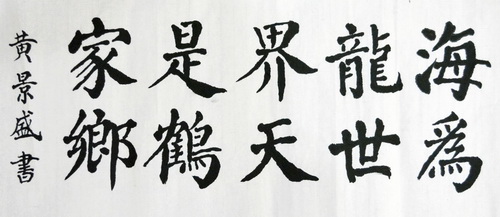 海為
龍世
界天
是鶴
家鄉
黃景盛書